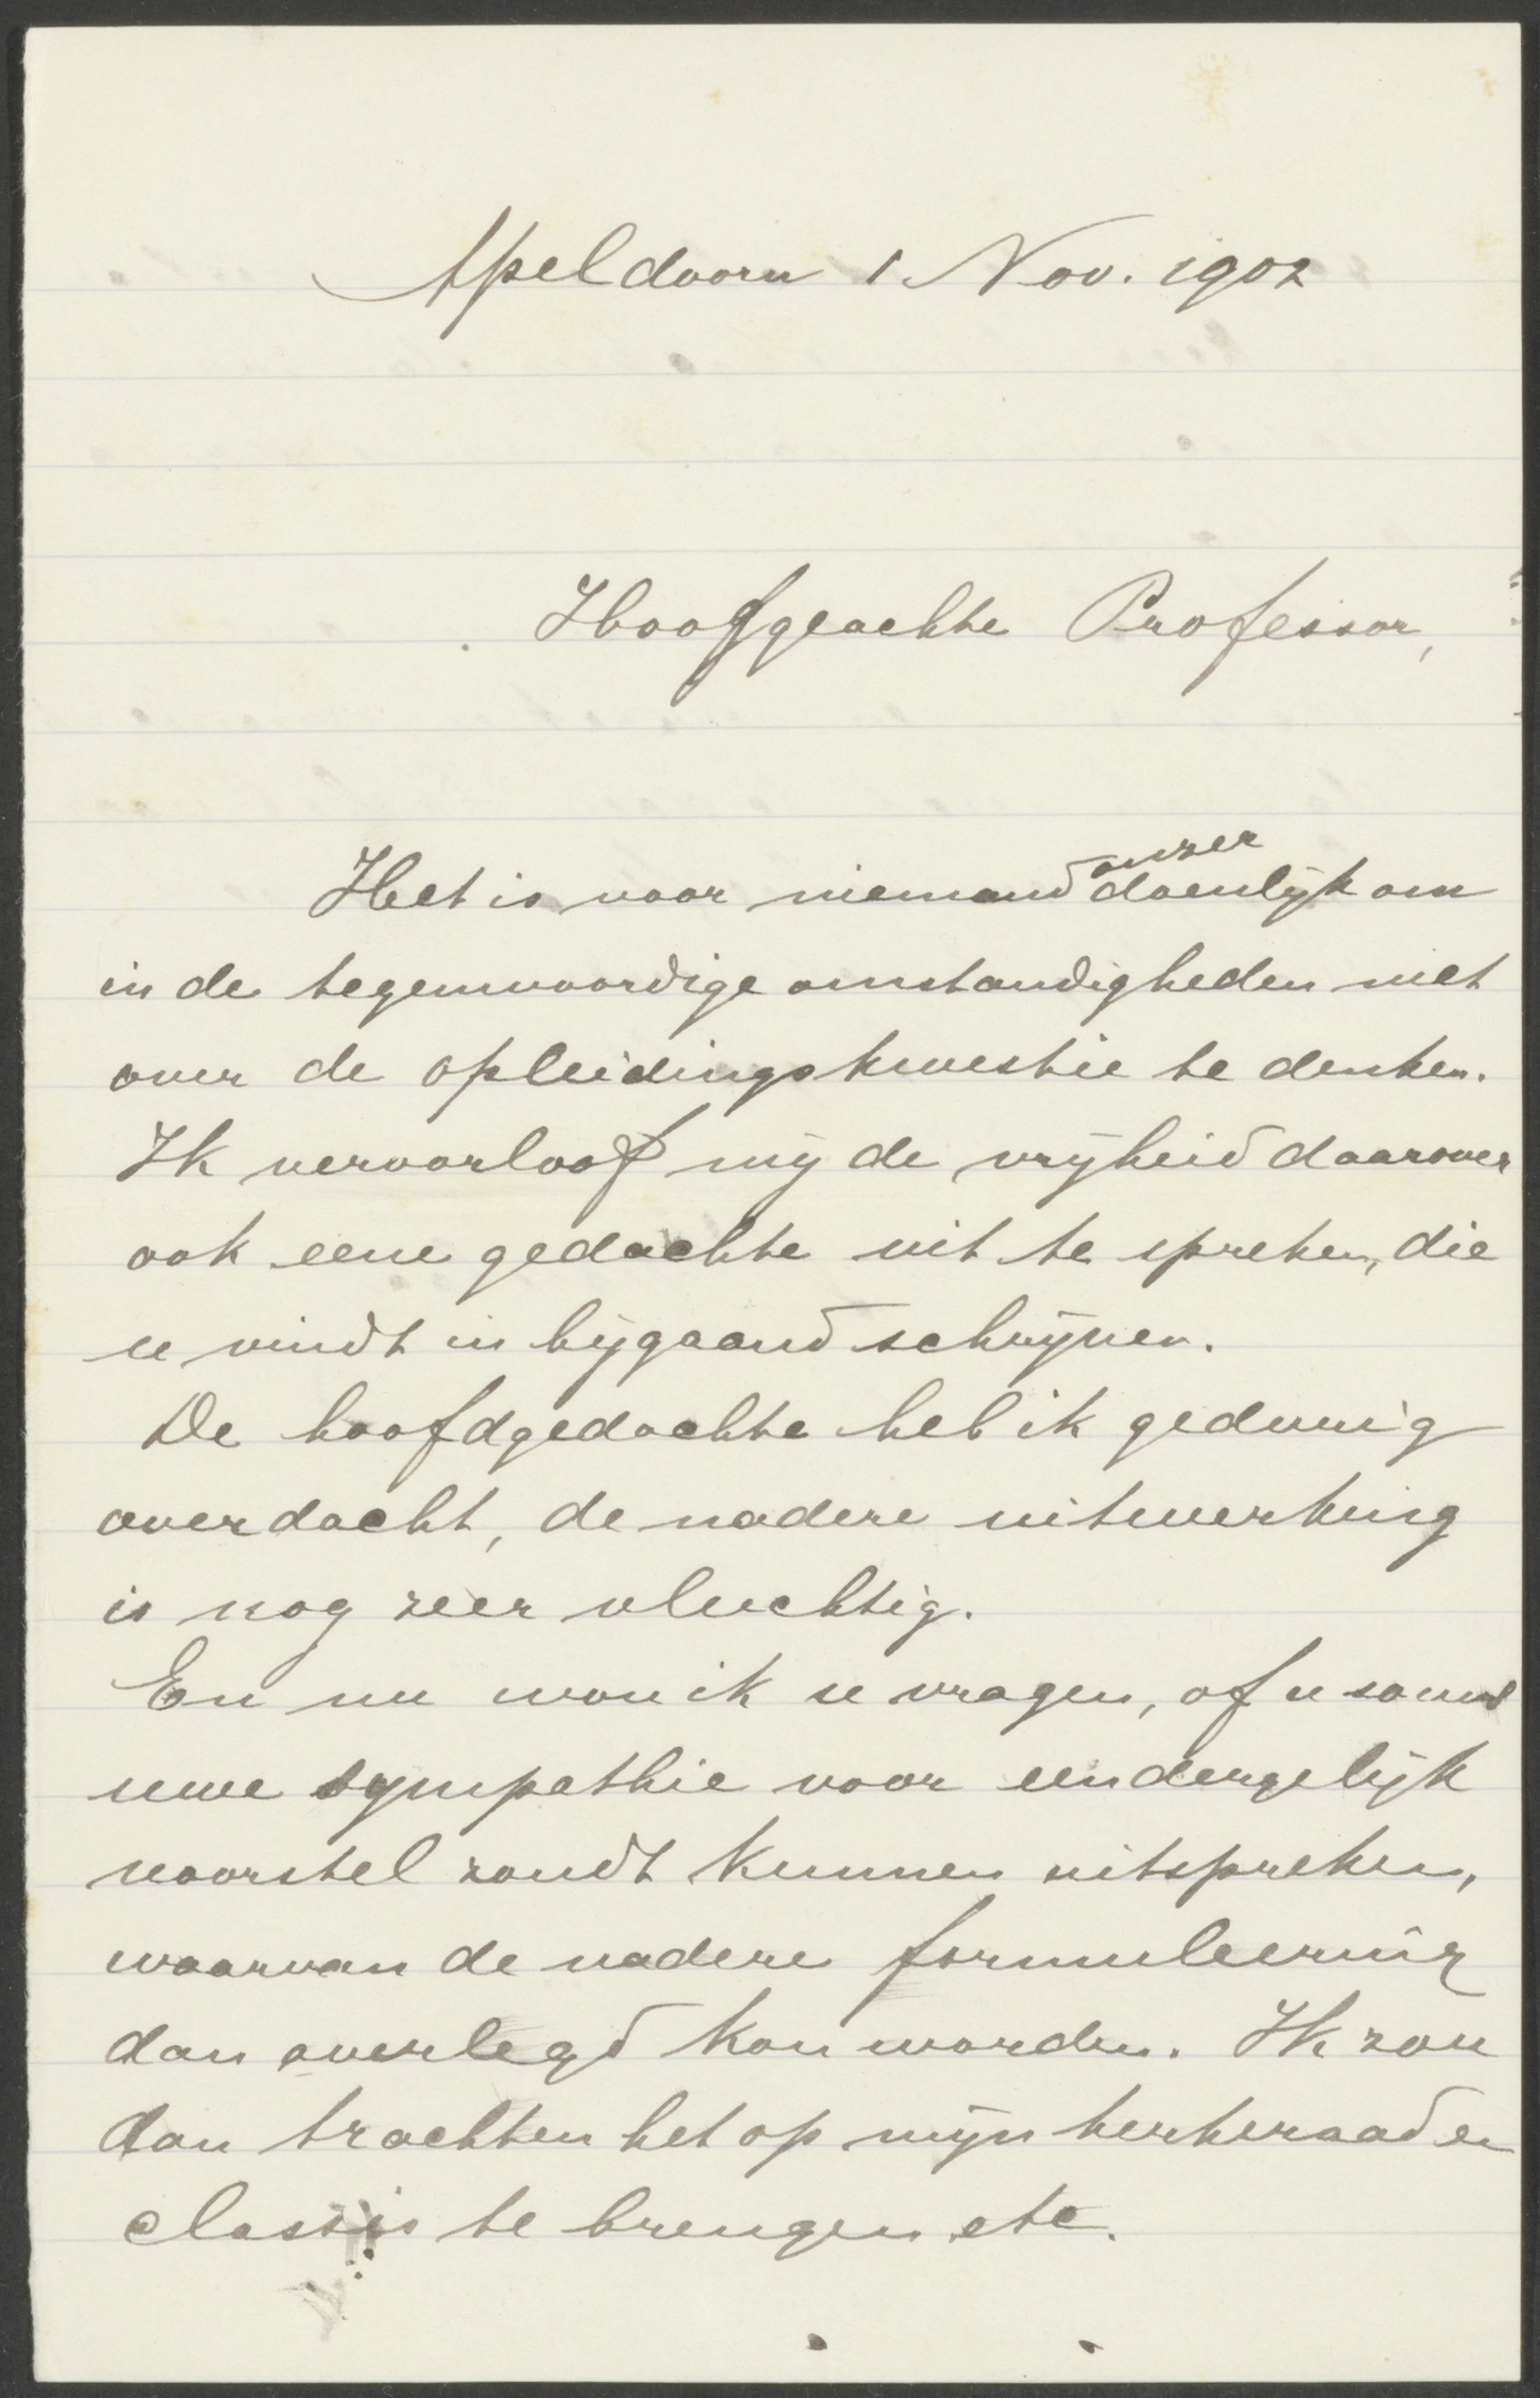 Apeldoorn 1 Nov. 1902
Hooggeachte Professor,
onzer
Het is voor niemand doenlijk om
in de tegenwoordige omstandigheden niet
over de opleidingskwestie te denken.
Ik veroorloof mij de vrijheid daarover
ook eene gedachte uit te spreken, die
u vindt in bijgaand schrijven.
De hoofdgedachte heb ik gedurig
overdacht, de nadere uitwerking
is nog zeer vluchtig.
En nu wou ik u vragen, of u soms
uwe sympathie voor een dergelijk
voorstel zoudt kunnen uitspreken,
waarvan de nadere formuleering
dan overlegd kon worden. Ik zou
dan trachten het op mijn kerkeraad en
classis te brengen etc.